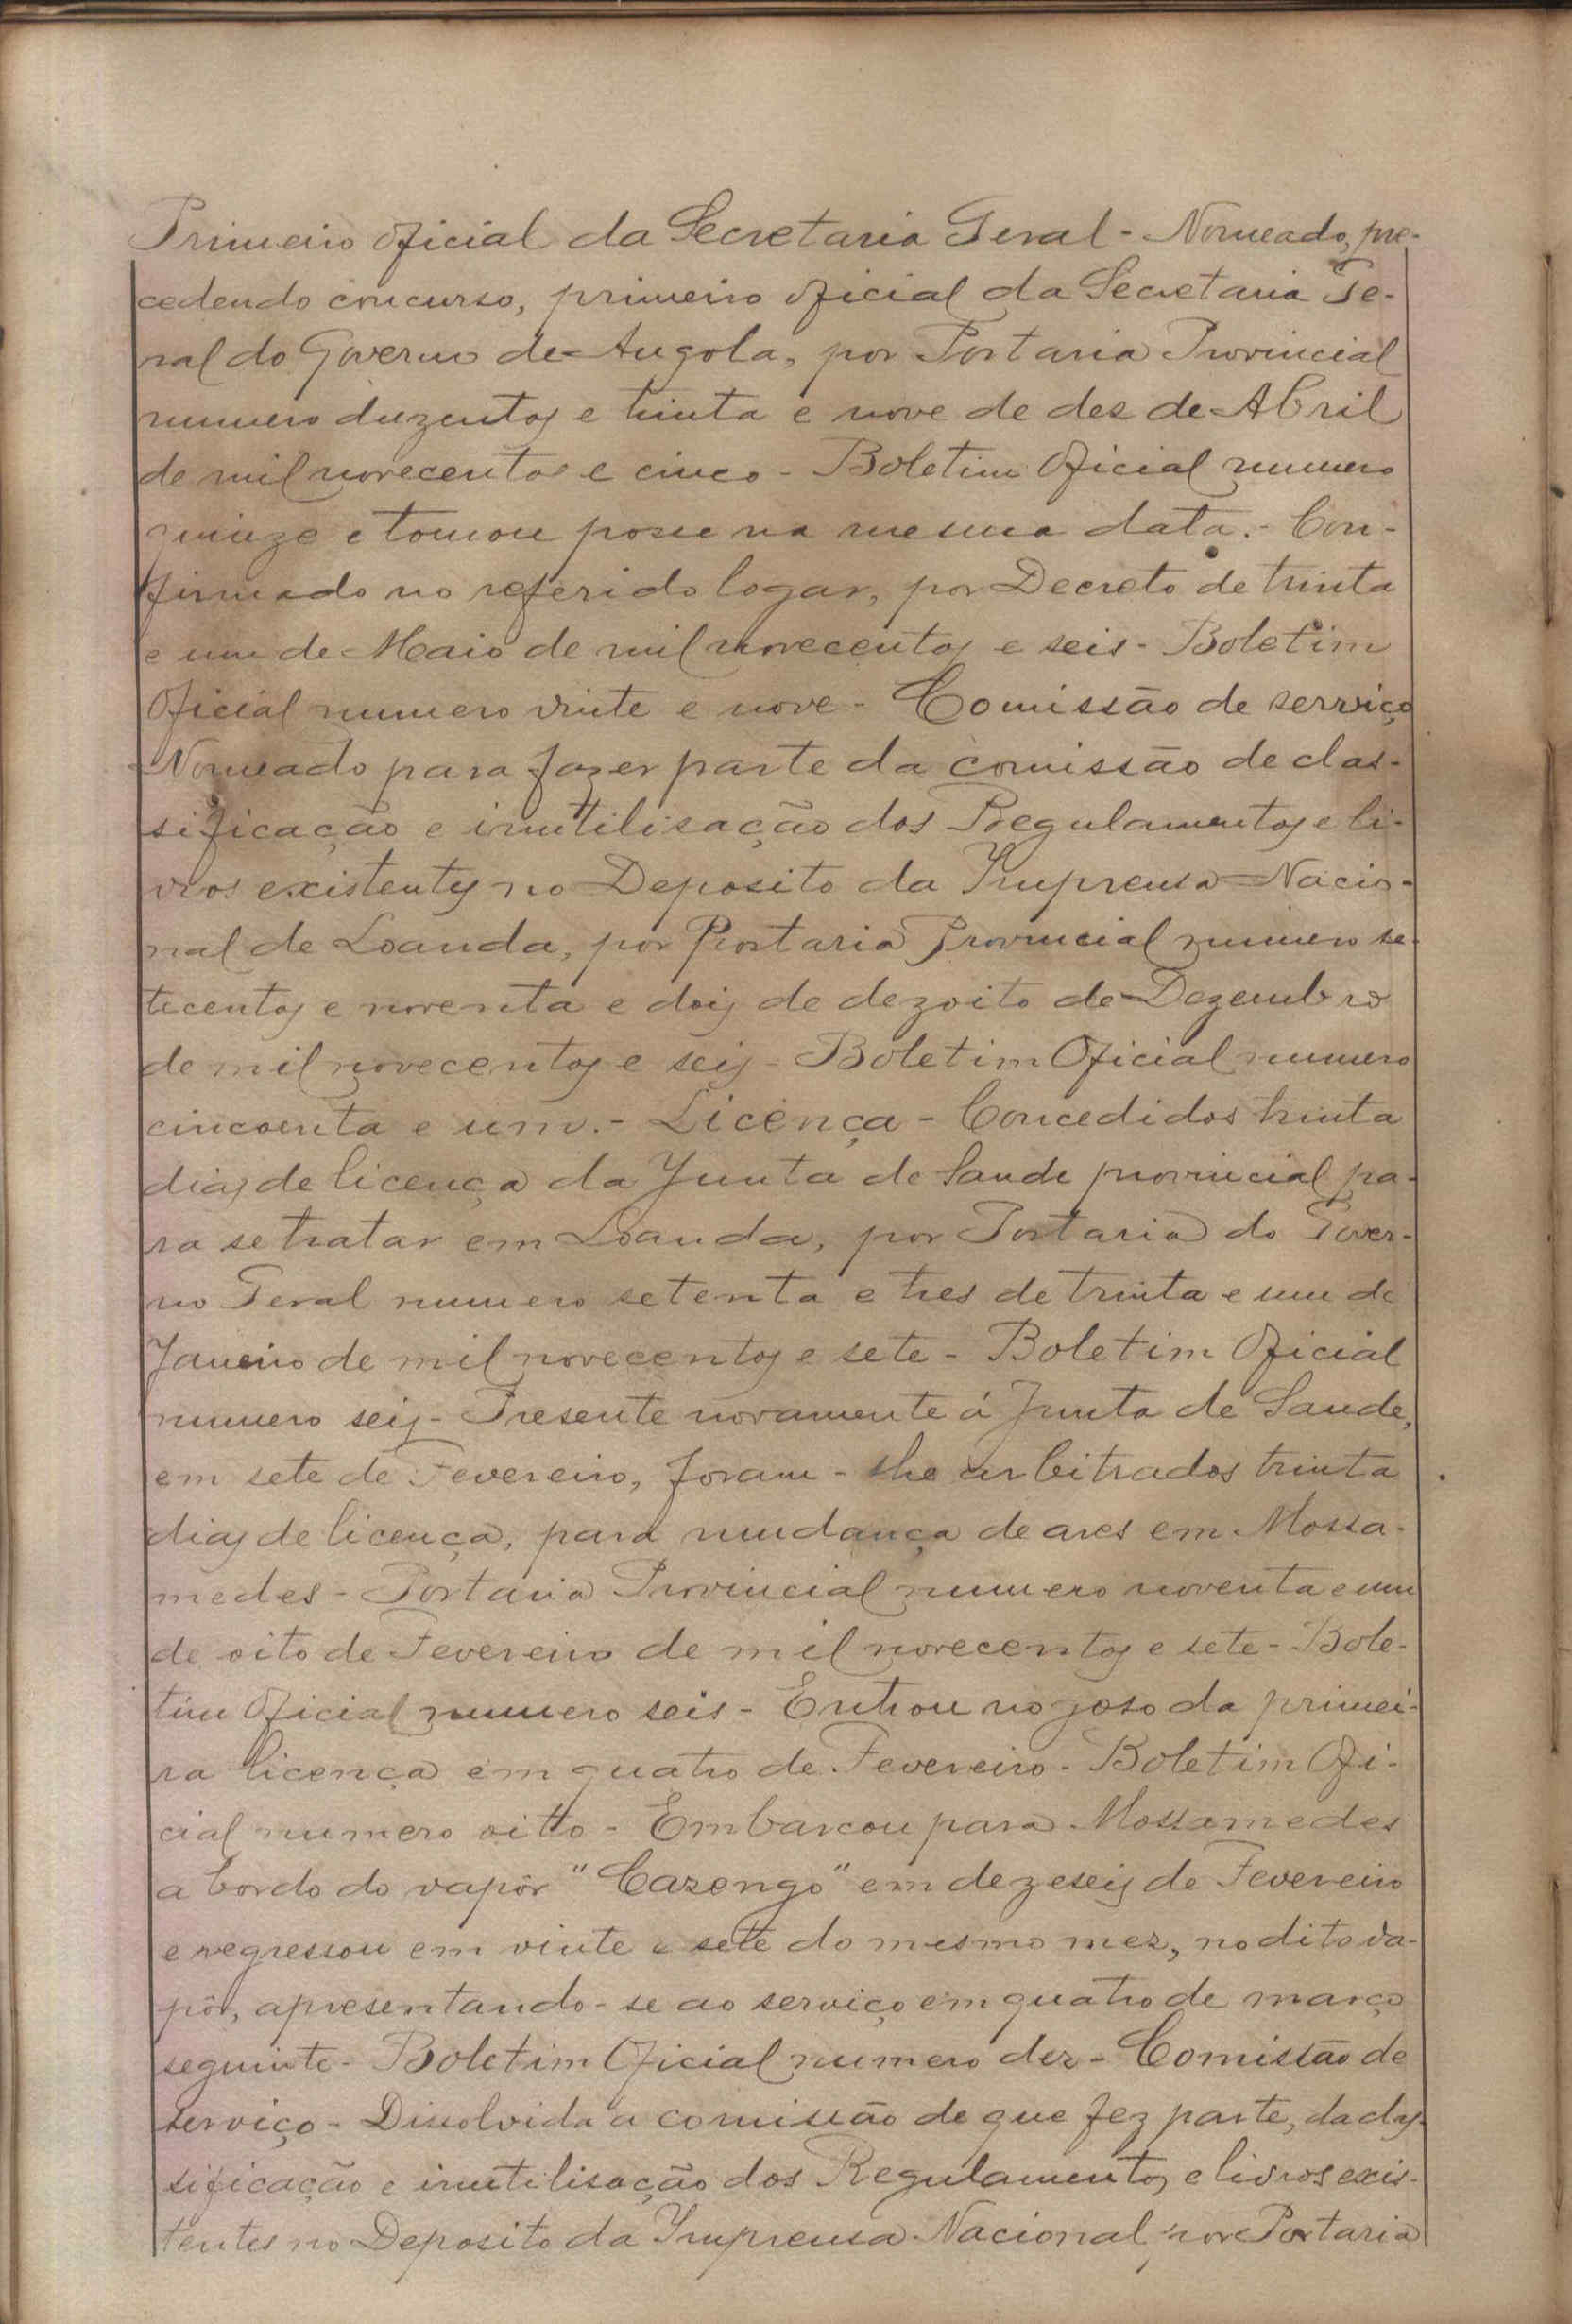 Primeiro oficial da Secretaria Geral - Nomeado, pre-
cedendo concurso, primeiro oficial da Secretaria Ge-
ral do Governo de Angola, por Portaria Provincial
numero duzentos e trinta e nove de des de Abril
de mil novecentos e cinco - Boletim Oficial numero
quinze e tomou posse na mesma data. - Con-
firmado no referido logar, por Decreto de trinta
e um de Maio de mil novecentos e seis - Boletim
Oficial numero vinte e nove - Comissão de serviço
Nomeado para fazer parte da comissão de clas-
sificação e inutilisação dos Regulamentos e li-
vros existentes no Deposito da Imprensa Nacio-
nal de Loanda, por Portaria Provincial numero se-
tecentos e noventa e dois de dezoito de Dezembro
de mil novecentos e seis - Boletim Oficial numero
cincoenta e um. - Licença - Concedidos trinta
dias de licença da Junta de Saude provincial pa-
ra se tratar em Loanda, por Portaria do Gover-
no Geral numero setenta e tres de trinta e um de
Janeiro de mil novecentos e sete - Boletim Oficial
numero seis - Presente novamente á Junta de Saude,
em sete de Fevereiro, foram - lhe arbitrados trinta
dias de licença, para mudança de ares em Mossa-
medes - Portaria Provincial numero noventa e um
de oito de Fevereiro de mil novecentos e sete - Bole-
tim Oficial numero seis - Entrou no goso da primei-
ra licença em quatro de Fevereiro - Boletim Ofi-
cial numero oitto - Embarcou para Mossamedes
a bordo do vapôr "Cazengo" em dezeseis de Fevereiro
e regressou em vinte e sete do mesmo mez, no dito va-
pôr, apresentando-se ao serviço em quatro de março
seguinte - Boletim Oficial numero dez - Comissão de
serviço - Dissolvida a comissão de que fez parte, da clas-
sificação e inutilisação dos Regulamentos e livros exis-
tentes no Deposito da Imprensa Nacional por Portaria